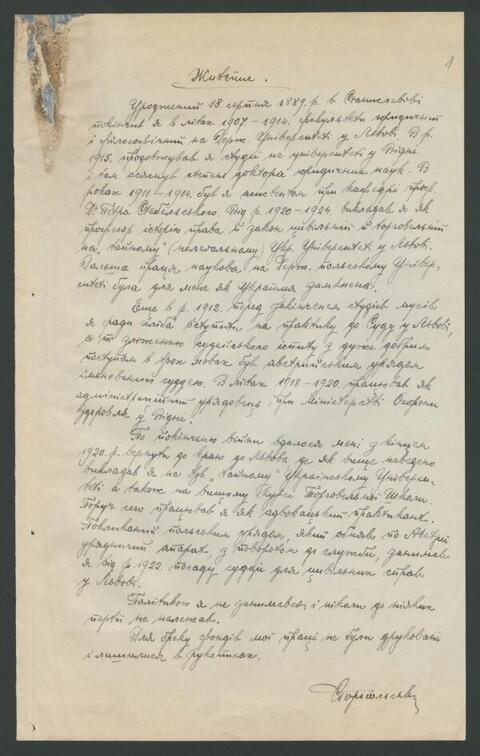 1
Життєпис.
Уроджений 18 серпня 1889.р. в Станиславові
покінчив я в літах 1907–1914. факультети юридичний
і фільософічний на Держ. Університеті у Львові. В р.
1915. продовжував я студії на університеті у Відні
і там осягнув степень доктора юридичних наук. В
роках 1911–1914. був я асистентом при катедрі проф.
Петра Стебельського. Від р. 1920–1924. викладав я як
професор історію права й закон цивільний й торговельний
на „тайному" (нелегальному) Укр. Університеті у Львові.
Дальша праця наукова на Держ. польському Універ-
ситеті була для мене як Українця замкнена.
Ще в р. 1912. перед закінченєм студій мусів
я ради хліба вступити на практику до Суду у Львові,
а по зложенню судейського іспиту з дуже добрим
поступом в був австрийським урядом
іменований суддею. В літах 1918–1920. працював як
адміністраційний урядовець при Міністерстві Охорони
Здоровля у Відні.
По покінченю війни вдалося мені з кінцем
1920.р. вернути до краю до Львова, де як вище наведено
викладав я на „тайному" Українському Універси-
теті а також на вищому Курсі Торговельної Школи.
Поруч сего працював я як адвокацький практикант.
Покликаний польським урядом, який обняв по Австрії
урядничий апарат, з поворотом до служби, занимав
я від р. 1922. посаду судді для цивільних справ
у Львові.
Політикою я не занимався і ніколи до ніяких
партій не належав.
Для браку фондів мої праці не були друковані
і лишилися в рукописах.